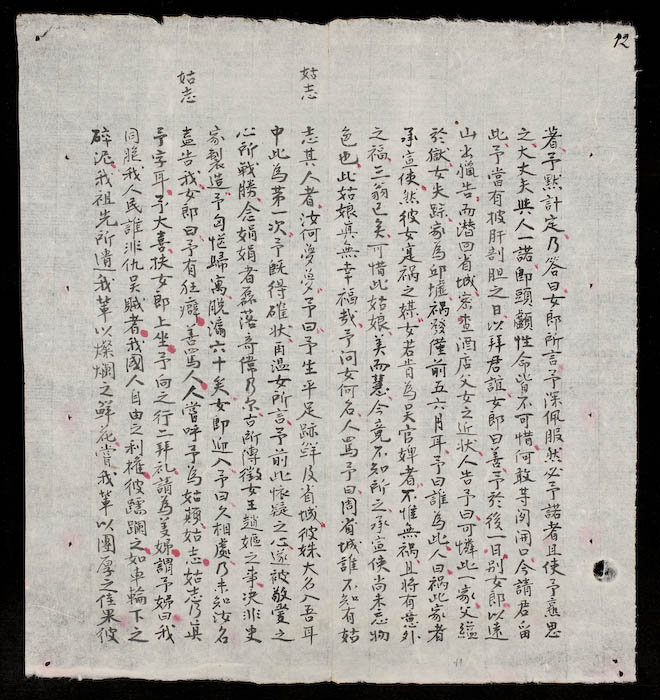 12
着予默計定乃答曰女郎所言予深佩服然必予諾者且使予熟思
之大丈夫與人一諾即頭顱性命皆不可惜何敢等閒開口今請君留
此予當有披肝剖胆之日以拜君誼女郎曰善予於後一日別女郎以遠
山出惱告而潜回省城密查酒店父女之近狀人告予曰可憐此一家父縊
於獄女失踪家為邱墟禍發僅前五六月耳予曰誰為此人曰禍此家者
承宣使然彼女寔禍之媒女若肯為吳官婢者不惟無禍且將有意外
之福三翁已矣可惜此姑娘美而慧今竟不知所之承宣使尚未忘物
色也此姑娘真無幸福哉予问女何名人罵予曰問省城誰不知有姑
姑志
志其人者汝何夢夢予曰予生平足跡鮮及省城彼姝大名入吾耳
中此為第一次予既得確狀再溫女所言予前此懷疑之心遂被敬愛之
心所戰勝念娟娟者磊落奇偉乃尔古所傳徵女王趙嫗之事决非史
家製造予匆忙歸寓脫漏六十矣女即迎入予曰久相處乃未知汝名
姑志
盍告我女郎曰予有狂癖善罵人人嘗呼予為姑 姑志姑志乃真
予字耳予大喜扶女郎上坐予向之行二拜礼請為美娣謂予娣曰我
同胞我人民誰非仇吳賊者我國人自由之利權彼蹂躙之如車輪下之
碎泥我祖先所遺我軰以燦爛之鮮花嘗我軰以團厚之佳果彼